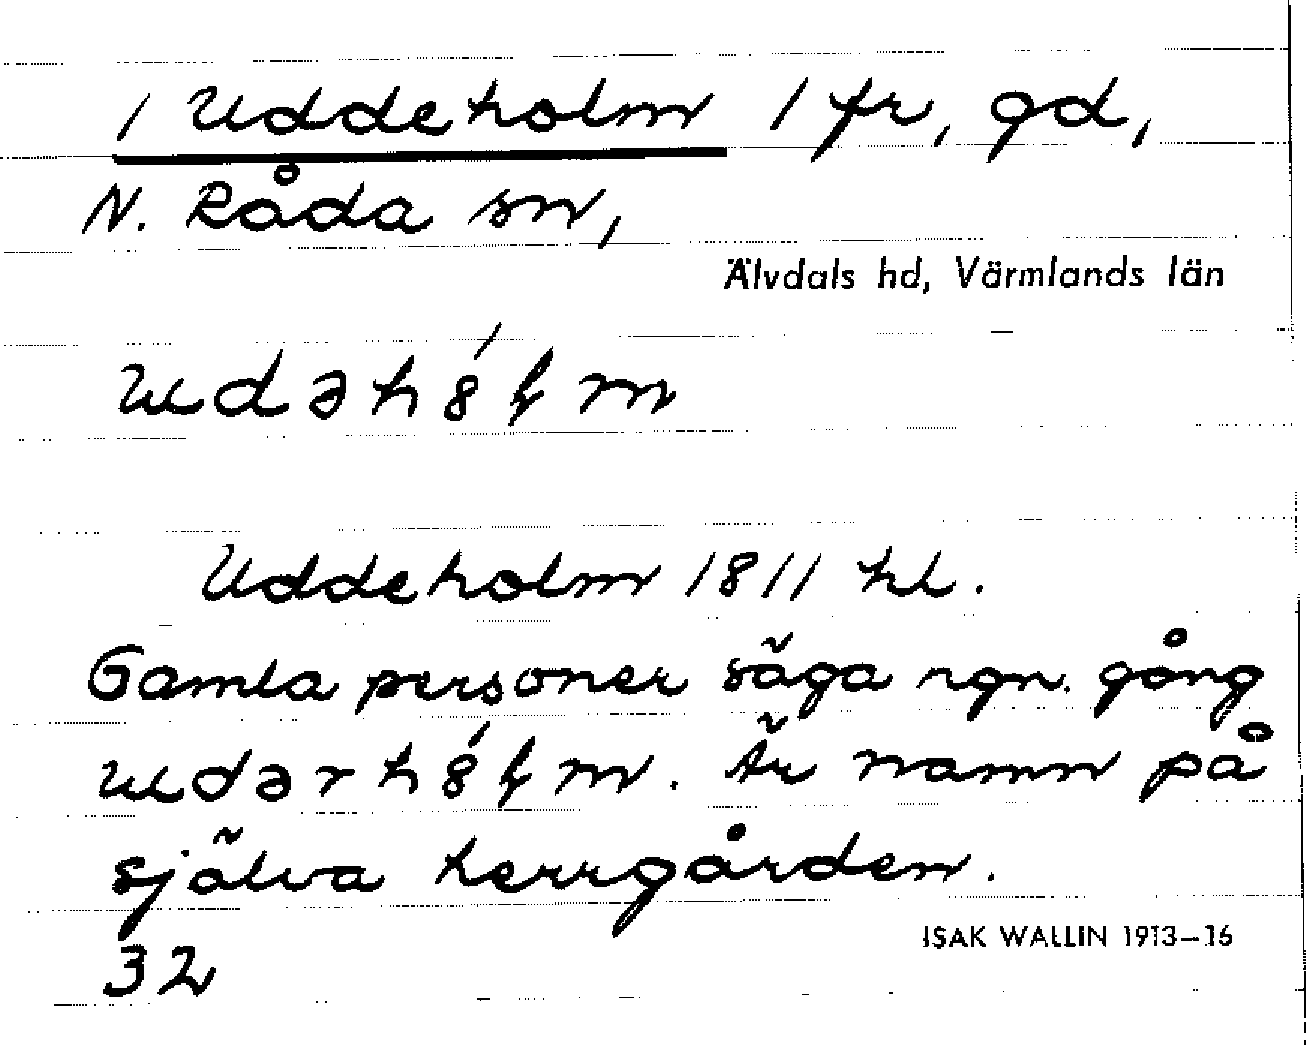 1 Uddeholm 1 fr, gd,
N. Råda sn,
Älvdals hd, Värmlands län
udəh8́ɫm
Uddeholm 1811 hl.
Gamla personer säga ngn. gång
udərh8́ɫm. Är namn på
själva herrgården.
32
ISAK WALLIN 1913–16